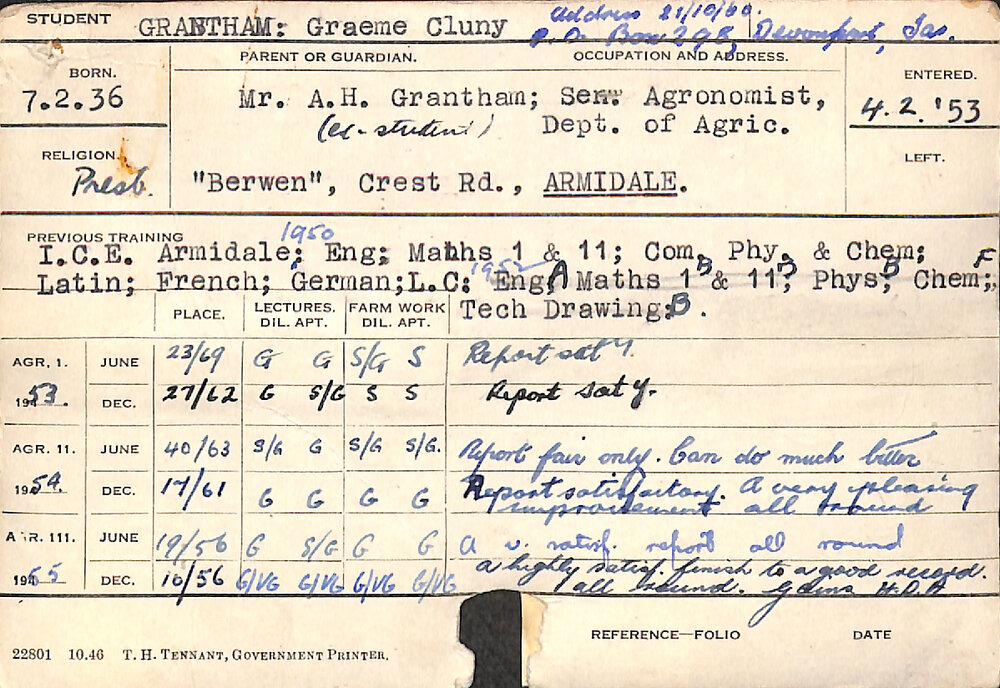 STUDENT GRANTHAM: Graeme Cluny Address 21/10/60.
P.O. Box 298, Devonport, Tas.
PARENT OR GUARDIAN. OCCUPATION AND ADDRESS.
BORN. ENTERED.
7.2.36 Mr. A.H. Grantham; Sen. Agronomist, 4.2.'53
(ex-student) Dept. of Agric.
RELIGION. LEFT.
Presb. "Berwen", Crest Rd., ARMIDALE.
PREVIOUS TRAINING 1950
I.C.E. Armidale; Eng; Maths 1 & 11; Com, Phy, & Chem;
1952 F
Latin; French; German; L.C: Eng A Maths 1 B & 11 B; Phys B; Chem;
Tech Drawing: B.
PLACE. LECTURES. DIL. APT. FARM WORK DIL. APT.
AGR, 1. JUNE 23/69 G G S/G S Report sat y.
1953. DEC. 27/62 G S/G S S Report sat y.
AGR. 11. JUNE 40/63 S/G G S/G S/G. Report fair only. Can do much better
1954. DEC. 17/61 G G G G Report satisfactory. A very pleasing
improvement all round
AGR. III. JUNE 19/56 G S/G G G A v. satisf. report all round
1955 DEC. 10/56 G/VG G/VG G/VG G/VG A highly satisf. finish to a good record.
all round. Gains H.D.A
REFERENCE—FOLIO DATE
22801 10.46 T. H. TENNANT, GOVERNMENT PRINTER.